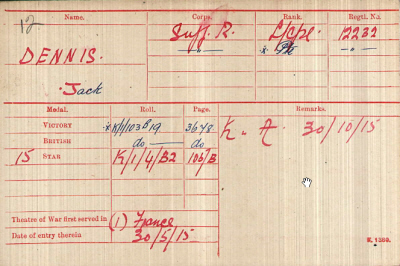 12
Name. Corps. Rank. Regtl. No.
DENNIS. Suff. R. L/Cpl. 12232
—„— * Pte —„—
Jack
Medal. Roll. Page. Remarks.
VICTORY * K/1/103B19 3648 K. in A. 30/10/15
BRITISH do do
15 STAR K/1/4/B2 106/B
Theatre of War first served in (1) France
Date of entry therein 30/5/15
K. 1380.